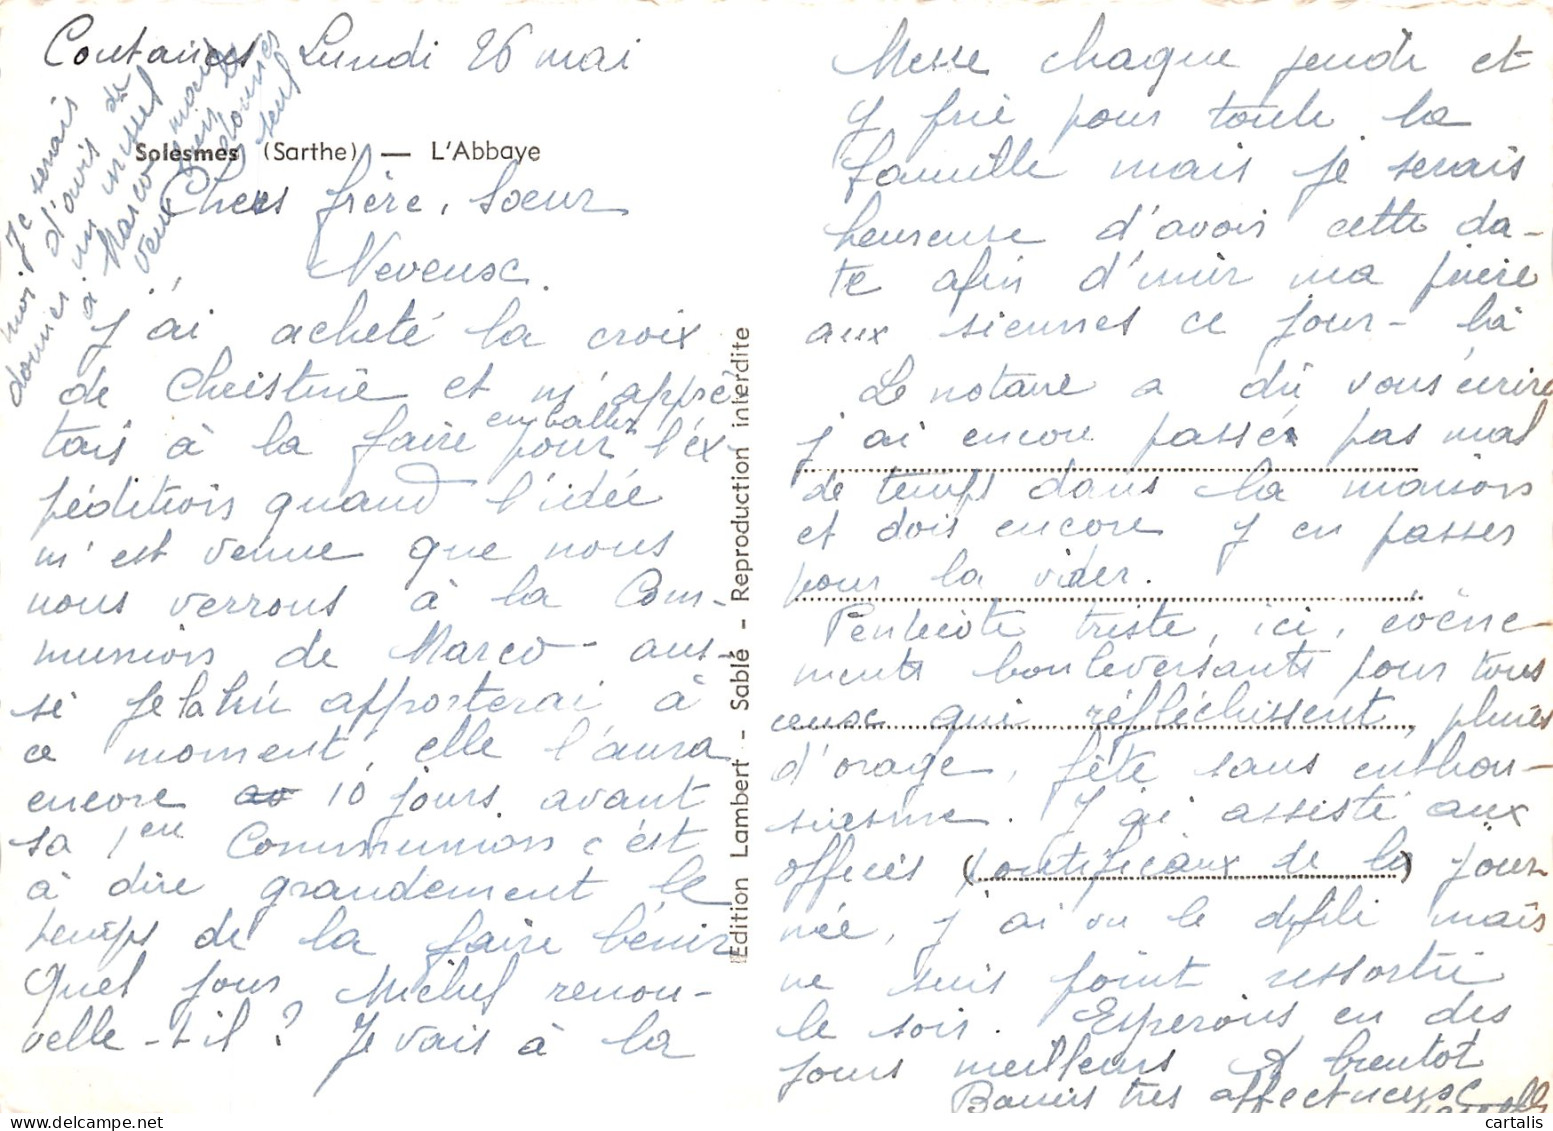 Coutances Lundi 26 mai
Solesmes (Sarthe) — L'Abbaye
Chers frère, Soeur
Neveux.
J'ai acheté la croix
de Christine et m'apprê
tais à la faire emballer pour l'éx-
pédition quand l'idée
m'est venue que nous
nous verrons à la Com-
munion de Marco - aus-
si je la lui apporterai à
ce moment, elle l'aura
encore 10 jours avant
sa 1ère Communion c'est
à dire grandement le
temps de la faire bénir
Quel jour Michel renou-
velle-t-il ? Je vais à la
Messe chaque jeudi et
y prie pour toute la
famille mais je serais
heureuse d'avoir cette da-
te afin d'unir ma prière
aux siennes ce jour-là
Le notaire a dû vous écrire
j'ai encore passé pas mal
de temps dans la maison
et dois encore y en passer
pour la vider.
Pentecôte triste, ici, évène-
ments bouleversants pour tous
ceux qui réfléchissent, pluies
d'orage, fête sans enthou-
siasme. J'ai assisté aux
offices (pontificaux de la) jour
née, j'ai vu le défilé mais
ne suis point ressortie
le soir. Espérons en des
jours meilleurs & à bientôt
Baisers très affectueux
Je serais
d'avis de
donner un missel
à Marco
Edition Lambert - Sablé - Reproduction interdite
cartalis